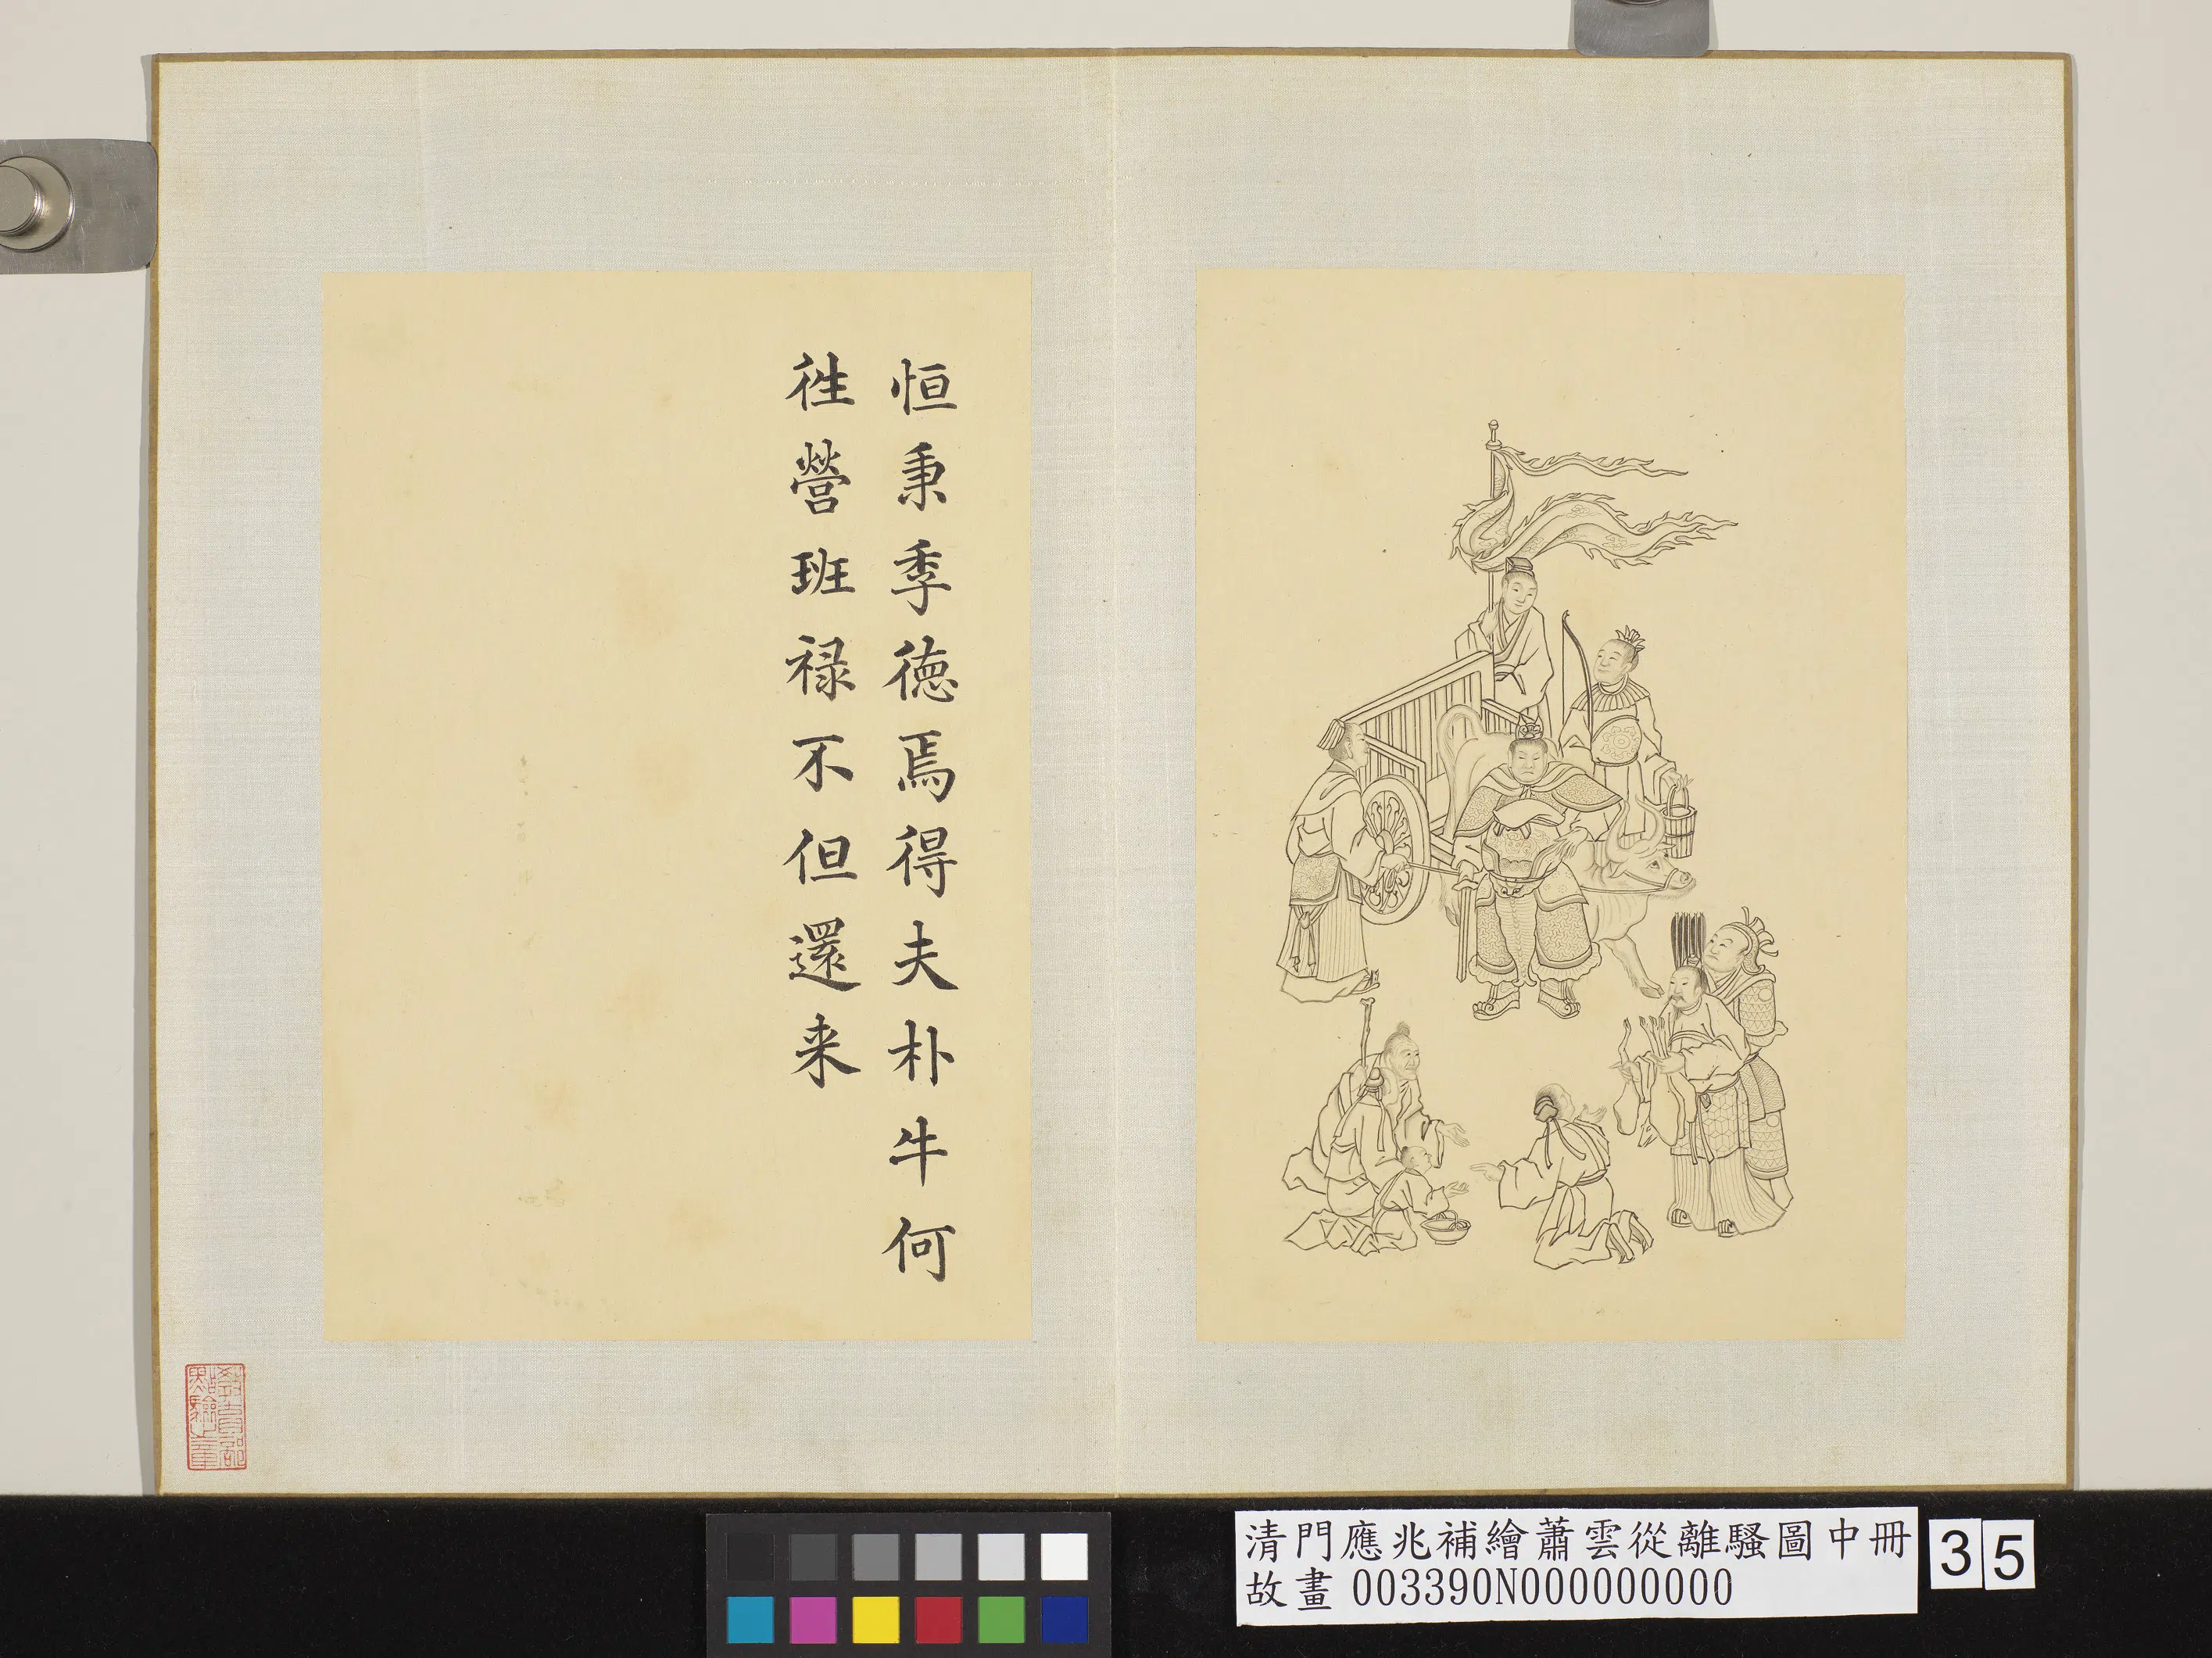 恒秉季德焉得夫朴牛何
往營班禄不但還来
教育部
點驗之章
清門應兆補繪蕭雲從離騷圖中冊
故畫 003390N000000000
35